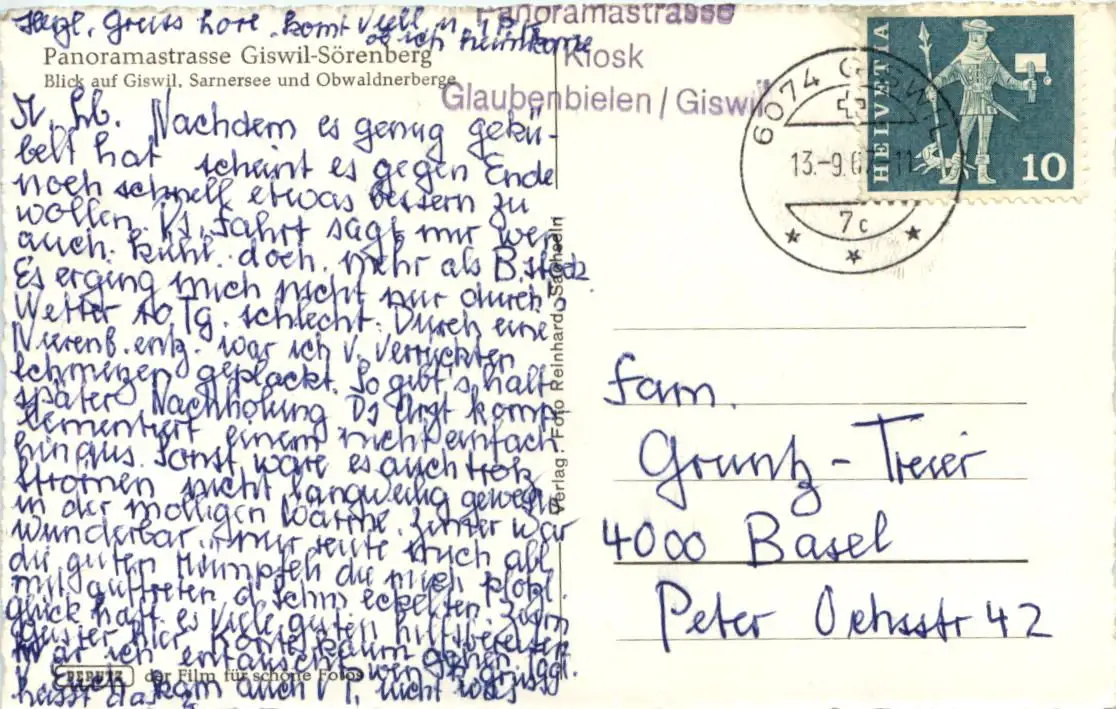 Hegl. Gruss Lore. komt viell. n. 1 Bf.
ob ich heimkomme
Panoramastrasse Giswil-Sörenberg
Blick auf Giswil, Sarnersee und Obwaldnerberge
Panoramastrasse
Kiosk
Glaubenbielen / Giswil
6074 GISWIL
13.-9.67 - 11
7c
HELVETIA
10
Lb. Nachdem es genug gekü-
belt hat scheint es gegen Ende
noch schnell etwas bessern zu
wollen. Ds. Fahrt sagt mir wen
auch kühl doch mehr als B.
Es erging mich nicht nur durch's
Wetter 10 Tg. schlecht. Durch eine
Nierenb. entz. war ich v. verrückten
Schmerzen geplackt. So gibt's halt
später Nachholung Ds Arzt komp
lementiert einem nicht einfach
hinaus. Sonst wäre es auch trotz
Strömen nicht langweilig gewesen
in der molligen Wärme. Zimer war
wunderbar. nur reute mich all
die guten Mümpfeli die mich plötzl.
mit auftreten d. Schm eckelten. Zum
glück hatt es viele guten hilfsbereiten
Geister hier konte kaum gehen. Tägl.
war ich entäuscht
Euch kam auch nicht was
heisst das?
PERUTZ der Film für schöne Fotos
Verlag: Foto Reinhard, Sachseln
Fam.
Gruntz - Treier
4000 Basel
Peter Ochsstr 42